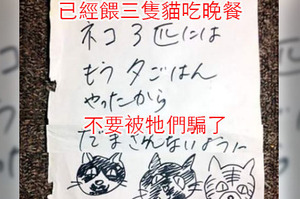 已經餵三隻貓吃晚餐
ネコ3匹には
もう夕ごはん
やったから
不要被牠們騙了
だまされないように